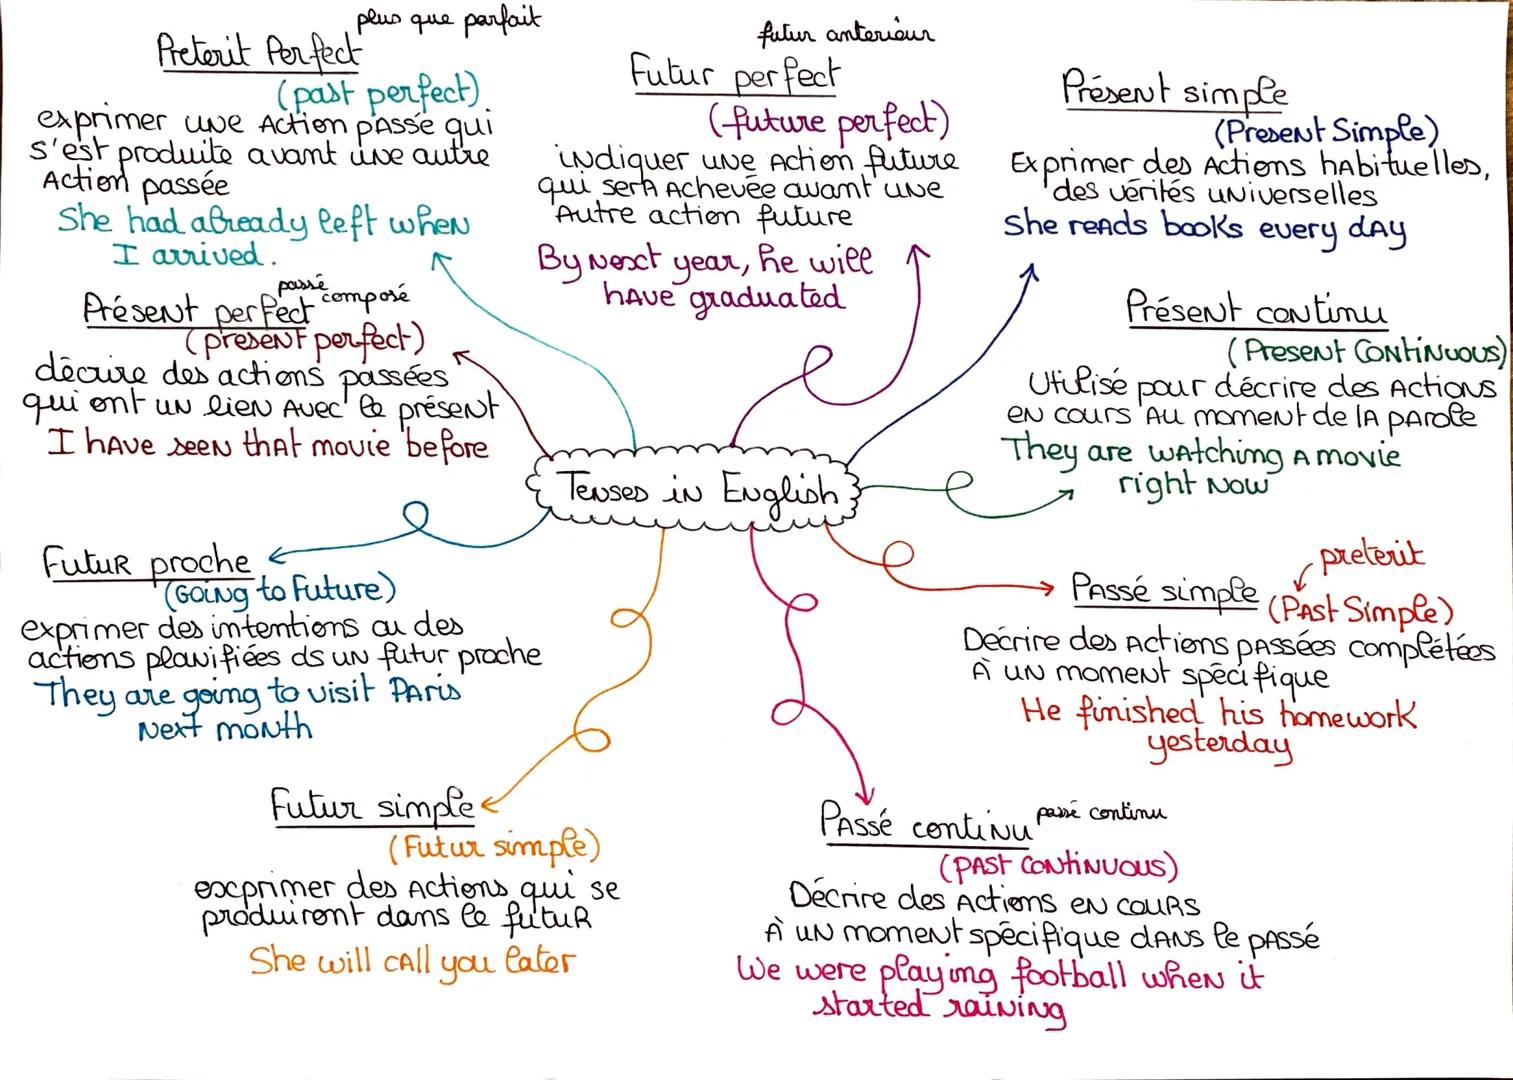 Tenses in English
plus que parfait
Preterit Perfect
(past perfect)
exprimer une Action pAssé qui
s'est produite avant une autre
Action passée
She had already left when
I arrived.
futur anterieur
Futur perfect
(future perfect)
indiquer une Action future
qui serA Achevée avant une
Autre action future
By Next year, he will
hAve graduated
Présent simple
(Present Simple)
Exprimer des Actions hAbituelles,
des vérités universelles
She reAds books every dAy
passé composé
Présent perfect
(present perfect)
décrire des actions passées
qui ont un lien Avec le présent
I hAve seen thAt movie before
Présent continu
(Present Continuous)
Utilisé pour décrire des Actions
en cours Au moment de lA pArole
They are wAtching A movie
right Now
Futur proche
(Going to Future)
exprimer des intentions ou des
actions planifiées ds un futur proche
They are going to visit PAris
Next month
preterit
PAssé simple (PAst Simple)
Décrire des Actions pAssées complétées
À un moment spécifique
He finished his homework
yesterday
Futur simple
(Futur simple)
exprimer des Actions qui se
produiront dans le futur
She will cAll you later
PAssé continu passé continu
(pAst continuous)
Décrire des Actions en cours
À un moment spécifique dAns le pAssé
We were playing football when it
started raining